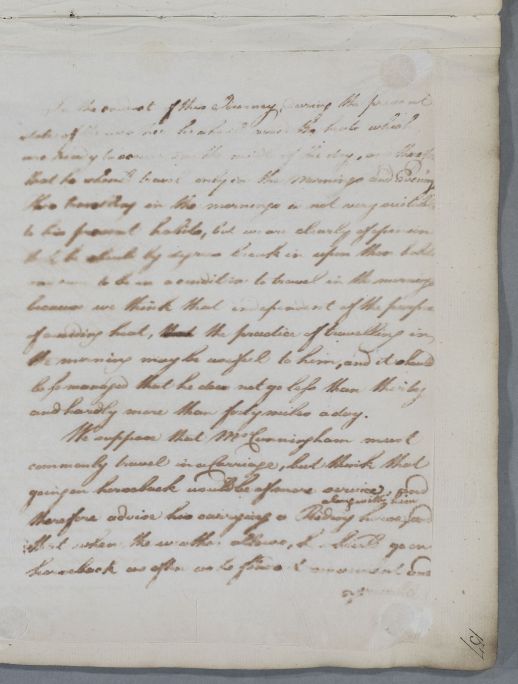 In the conduct of this Journey, during the present
state of the
are ready to occur in the middle of the day, and therefore
that he should travel only in the mornings and Evenings
tho travelling in the mornings is not very suitable
to his present habits, but we are clearly of opinion
that he should by degrees break in upon these habits
to be in a condition to travel in the mornings
because we think that independent of the purpose
of avoiding heat, the practice of travelling in
the morning may be usefull to him, and it should
be so managed that he does not go less than thirty
and hardly more than forty miles a day.
We suppose that Mr Cunningham must
commonly travel in a Carriage, but think that
going on horseback would be of more service, and
along with him
therefore advise his carrying a Riding horse and
that when the weather allows, he should go on
horseback as often as he finds it convenient and
agreeable
157